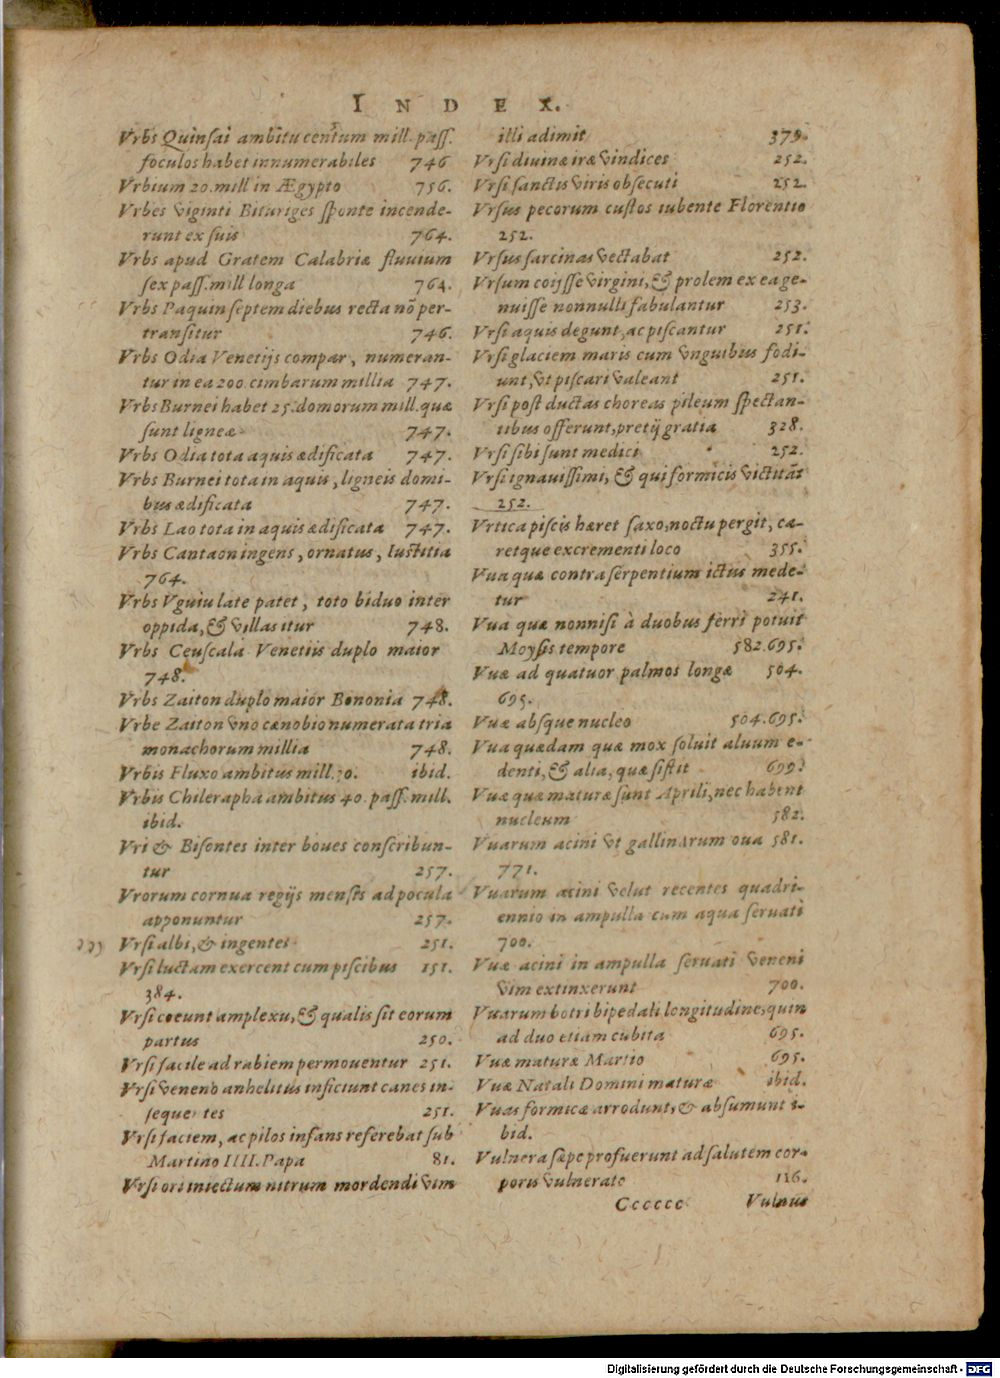 INDEX.
Vrbs Quinsai ambitu centum mill. pass.
foculos habet innumerabiles 746
Vrbium 20. mill in Ægypto 756.
Vrbes viginti Bituriges sponte incende-
runt ex suis 764.
Vrbs apud Gratem Calabriæ fluuium
sex pass. mill longa 764.
Vrbs Paquin septem diebus recta nõ per-
transitur 746.
Vrbs Odia Venetijs compar, numeran-
tur in ea 200. cimbarum millia 747.
Vrbs Burnei habet 25. domorum mill. quæ
sunt ligneæ 747.
Vrbs Odia tota aquis ædificata 747.
Vrbs Burnei tota in aquis, ligneis domi-
bus ædificata 747.
Vrbs Lao tota in aquis ædificata 747.
Vrbs Cantaon ingens, ornatus, Iustitia
764.
Vrbs Vguiu late patet, toto biduo inter
oppida, & villas itur 748.
Vrbs Ceuscala Venetiis duplo maior
748.
Vrbs Zaiton duplo maior Bononia 748.
Vrbe Zaiton vno cœnobio numerata tria
monachorum millia 748.
Vrbis Fluxo ambitus mill. 70. ibid.
Vrbis Chilerapha ambitus 40. pass. mill.
ibid.
Vri & Bisontes inter boues conscribun-
tur 257.
Vrorum cornua regijs mensis ad pocula
apponuntur 257.
Vrsi albi, & ingentes 251.
Vrsi luctam exercent cum piscibus 151.
384.
Vrsi coeunt amplexu, & qualis sit eorum
partus 250.
Vrsi facile ad rabiem permouentur 251.
Vrsi veneno anhelitus inficiunt canes in-
sequentes 251.
Vrsi faciem, ac pilos infans referebat sub
Martino IIII. Papa 81.
Vrsi ori iniectum nitrum mordendi vim
illi adimit 379.
Vrsi diuinæ iræ vindices 252.
Vrsi sanctis viris obsecuti 252.
Vrsus pecorum custos iubente Florentio
252.
Vrsus sarcinas vectabat 252.
Vrsum coijsse virgini, & prolem ex ea ge-
nuisse nonnulli fabulantur 253.
Vrsi aquis degunt, ac piscantur 251.
Vrsi glaciem maris cum vnguibus fodi-
unt, vt piscari valeant 251.
Vrsi post ductas choreas pileum spectan-
tibus offerunt, pretij gratia 328.
Vrsi sibi sunt medici 252.
Vrsi ignauissimi, & qui formicis victitãt
252.
Vrtica piscis hæret saxo, noctu pergit, ca-
retque excrementi loco 355.
Vua quæ contra serpentium ictus mede-
tur 241.
Vua quæ nonnisi à duobus ferri potuit
Moysis tempore 582.695.
Vuæ ad quatuor palmos longæ 504.
695.
Vuæ absque nucleo 504.695.
Vua quædam quæ mox soluit aluum e-
denti, & alia, quæ sistit 699.
Vuæ quæ maturæ sunt Aprili, nec habent
nucleum 582.
Vuarum acini vt gallinarum oua 581.
771.
Vuarum acini velut recentes quadri-
ennio in ampulla cum aqua seruati
700.
Vuæ acini in ampulla seruati veneni
vim extinxerunt 700.
Vuarum botri bipedali longitudine, quin
ad duo etiam cubita 695.
Vuæ maturæ Martio 695.
Vuæ Natali Domini maturæ ibid.
Vuas formicæ arrodunt, & absumunt i-
bid.
Vulnera sæpe profuerunt ad salutem cor-
poris vulnerato 116.
Cccccc Vulnus
Digitalisierung gefördert durch die Deutsche Forschungsgemeinschaft - DFG